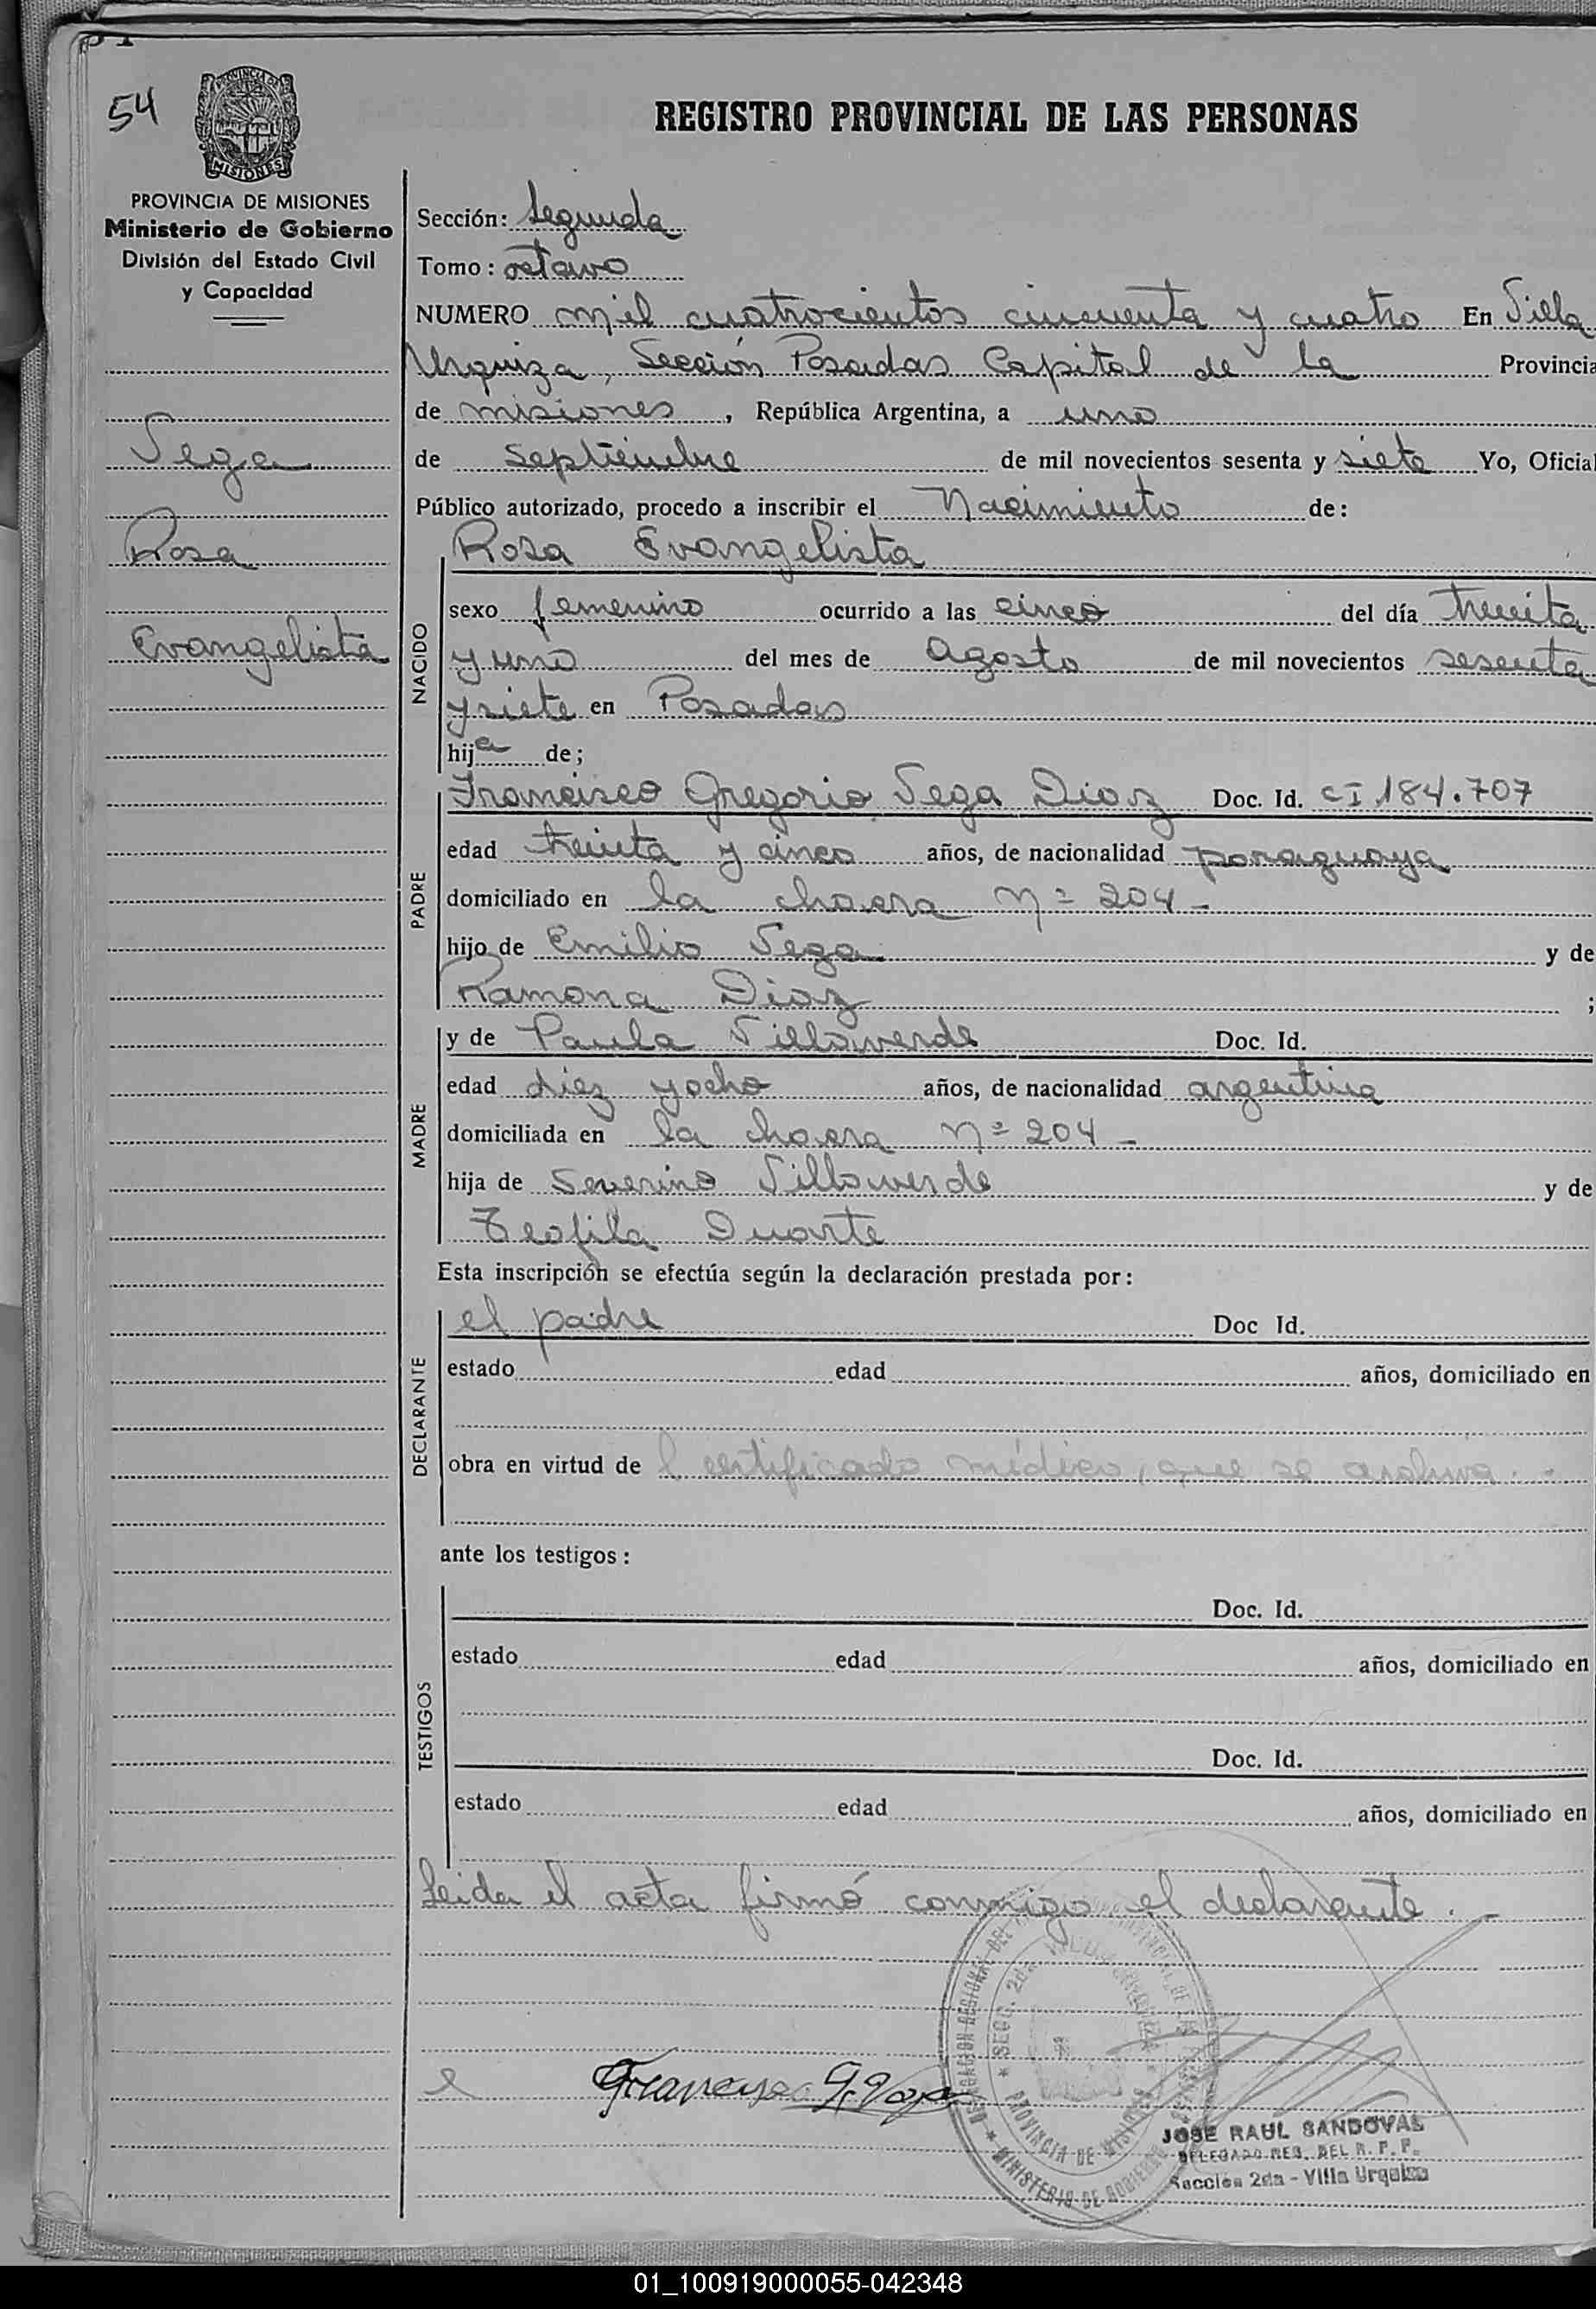 54
PROVINCIA DE MISIONES
Ministerio de Gobierno
División del Estado Civil
y Capacidad
Vega
Rosa
Evangelista
REGISTRO PROVINCIAL DE LAS PERSONAS
Sección: Segunda
Tomo: octavo
NUMERO mil cuatrocientos cincuenta y cuatro En Villa
Urquiza, Sección Posadas Capital de la Provincia
de misiones, República Argentina, a uno
de septiembre de mil novecientos sesenta y siete Yo, Oficial
Público autorizado, procedo a inscribir el Nacimiento de:
NACIDO
Rosa Evangelista
sexo femenino ocurrido a las cinco del día treinta
y uno del mes de Agosto de mil novecientos sesenta
y siete en Posadas
hija de;
PADRE
Francisco Gregorio Vega Diaz Doc. Id. CI 184.707
edad treinta y cinco años, de nacionalidad paraguaya
domiciliado en la chacra Nº 204 -
hijo de Emilio Vega y de
Ramona Diaz ;
MADRE
y de Paula Villaverde Doc. Id.
edad diez y ocho años, de nacionalidad argentina
domiciliada en la chacra Nº 204 -
hija de Severino Villaverde y de
Teofila Duarte
Esta inscripción se efectúa según la declaración prestada por:
DECLARANTE
el padre Doc Id.
estado edad años, domiciliado en
obra en virtud de l certificado médico, que se archiva. -
ante los testigos:
TESTIGOS
Doc. Id.
estado edad años, domiciliado en
Doc. Id.
estado edad años, domiciliado en
Leida el acta firmó conmigo el declarante. -
DELEGACION REGIONAL DEL REGISTRO PROVINCIAL DE LAS PERSONAS
* SECC. 2da. VILLA URQUIZA *
PROVINCIA DE MISIONES
* MINISTERIO DE GOBIERNO
Francisco G. Vega
JOSE RAUL SANDOVAL
DELEGADO REG. DEL R. P. P.
Sección 2da - Villa Urquiza
01_100919000055-042348